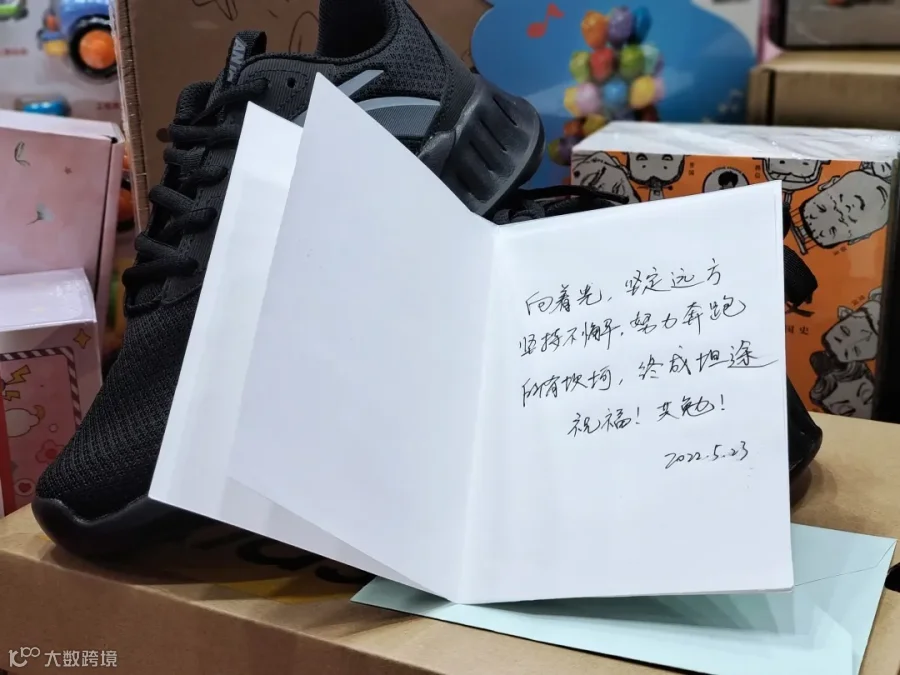 向着光，坚定远方
坚持不懈，努力奔跑
所有坎坷，终成坦途
祝福！共勉！
2022.5.23
国史
大数跨境